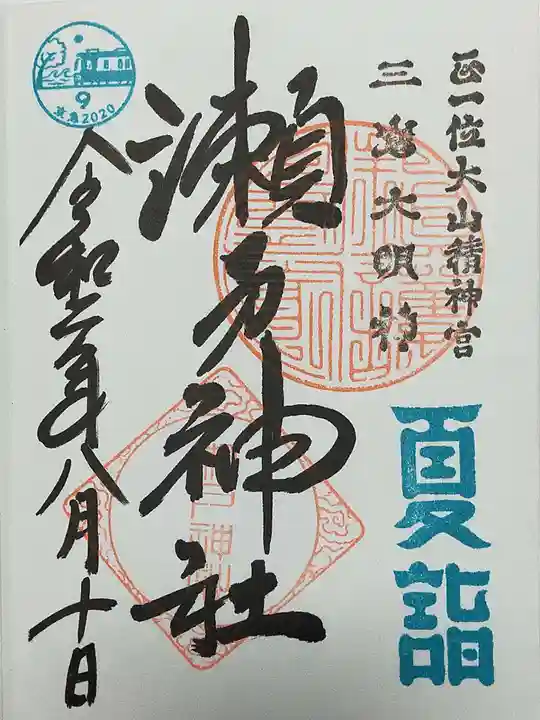 正一位大山積神宮
三島大明神
夏詣
瀬戸神社
令和二年八月十日
9
京急2020